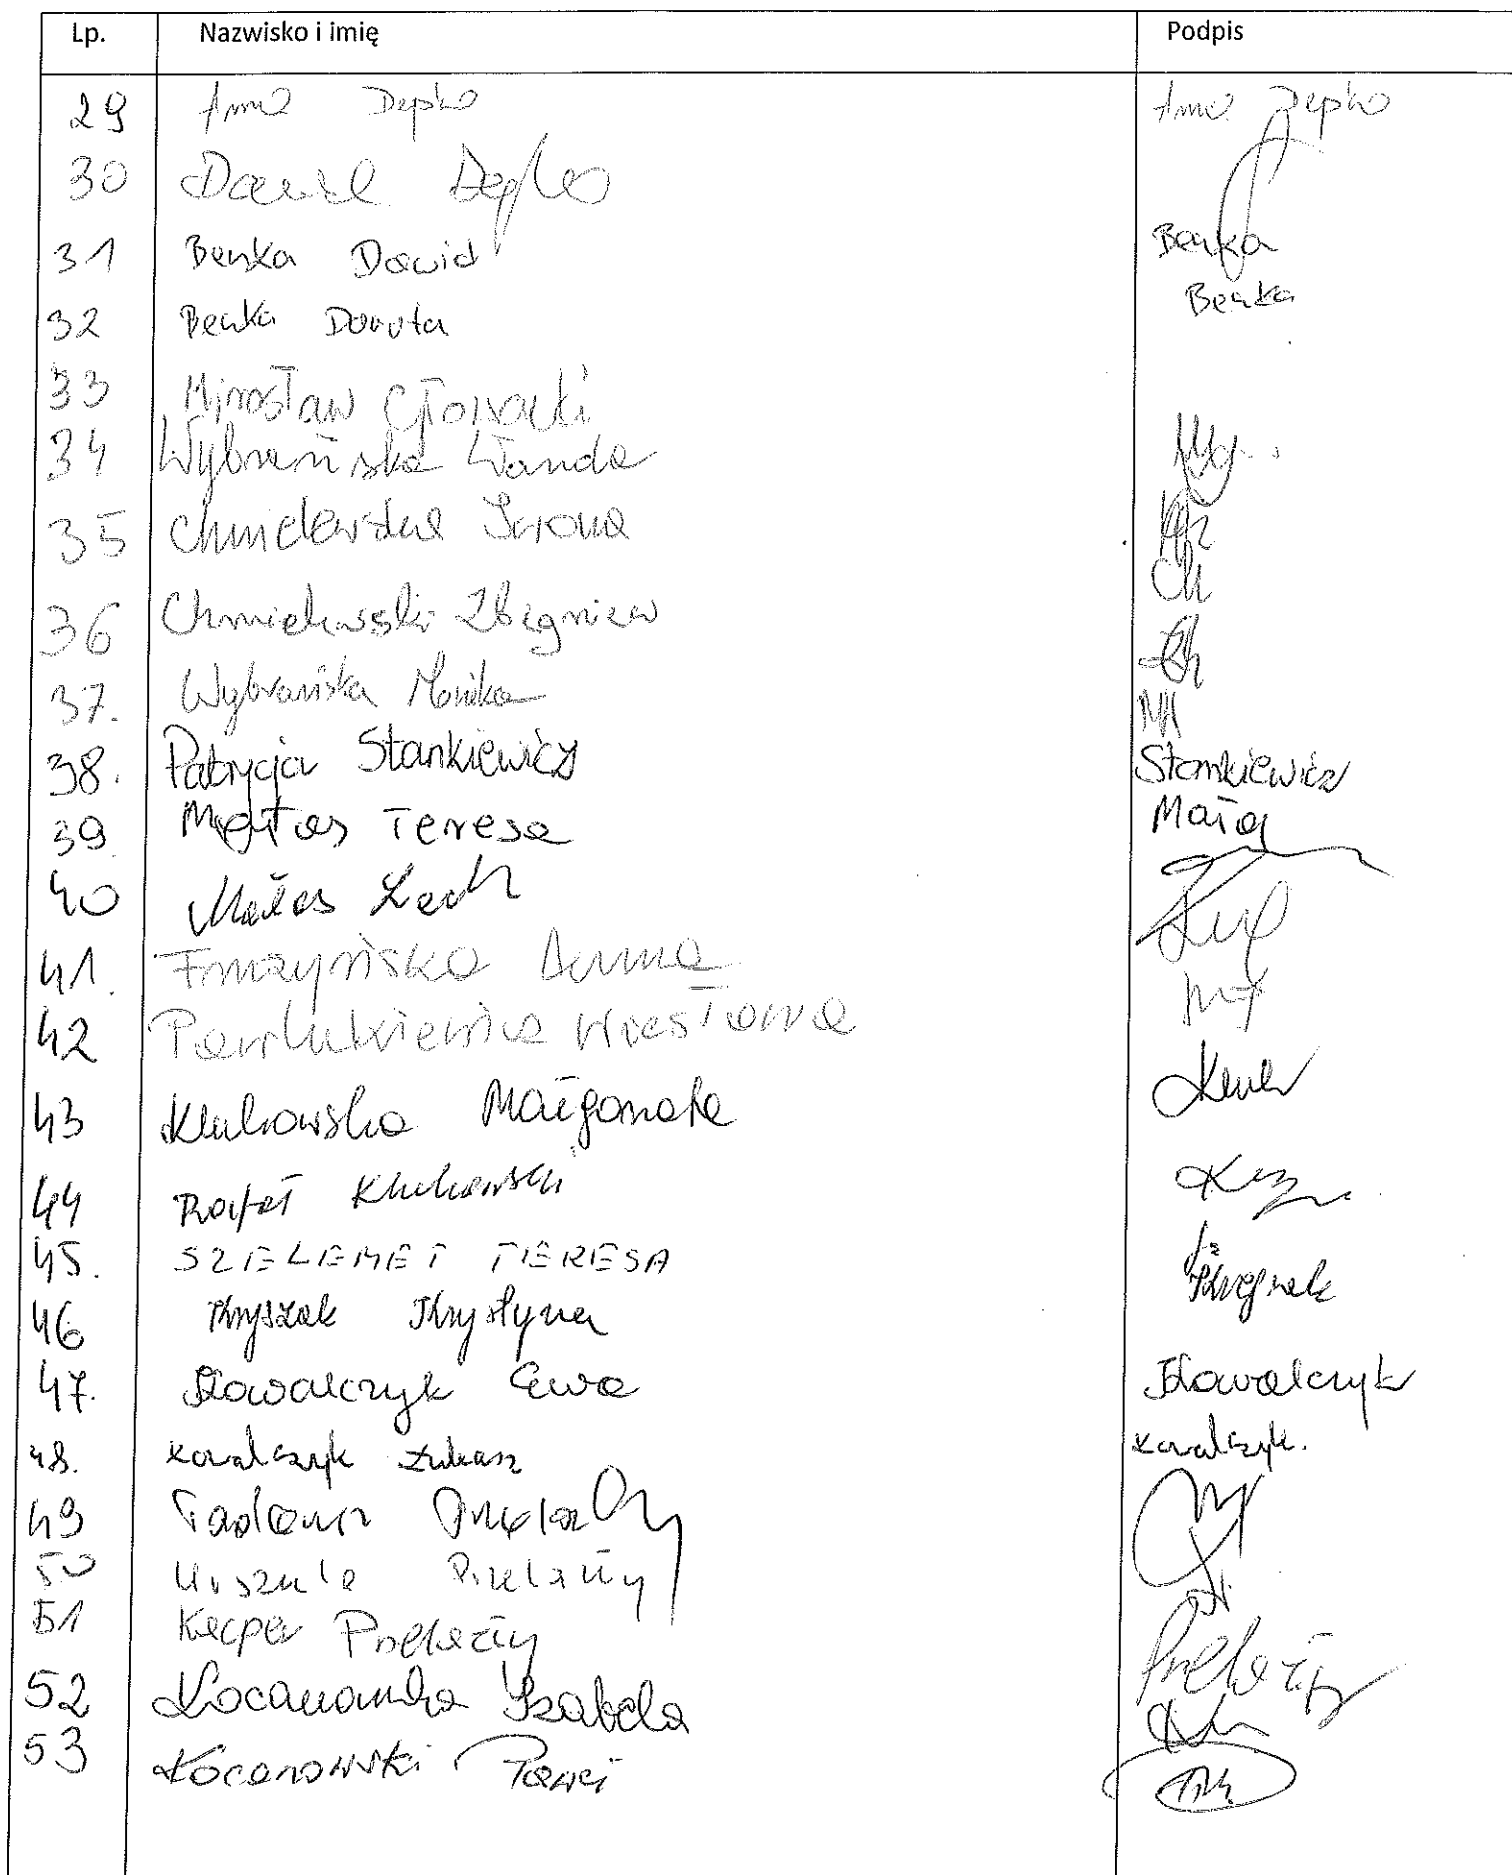 Lp. Nazwisko i imię Podpis
29 Anna Depko Anna Depko
30 Dawid Depko
31 Benka Dawid Benka
32 Benka Dorota Benka
33 Mirosław Głowacki
34 Wybrańska Wanda
35 Chmielewska Iwona
36 Chmielewski Zbigniew Ch
37. Wybrańska Monika
38. Patrycja Stankiewicz Stankiewicz
39 Małas Teresa
40 Małas Lech
41. Anna
42 Wiesława
43 Klukowska Małgorzata
44 Rafał Klukowski
45. SZELEMET TERESA
46 Kryszak Krystyna Kryszak
47. Kowalczyk Ewa Kowalczyk
48. Kowalczyk Łukasz Kowalczyk.
49 Tadeusz Przełaży
50 Urszula Przełaży
51 Kacper Przełaży Przełaży
52 Kocanowska Izabela
53 Kocanowski Paweł